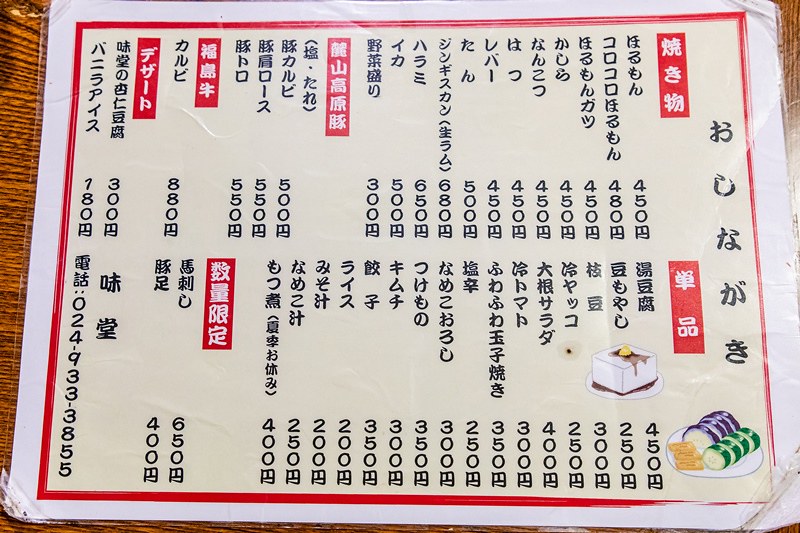 おしながき
焼き物
ほるもん 450円
コロコロほるもん 480円
ほるもんガツ 450円
かしら 450円
なんこつ 450円
はつ 450円
レバー 450円
たん 500円
ジンギスカン(生ラム) 680円
ハラミ 650円
イカ 500円
野菜盛り 300円
麓山高原豚
(塩・たれ)
豚カルビ 500円
豚肩ロース 550円
豚トロ 550円
福島牛
カルビ 880円
デザート
味堂の杏仁豆腐 300円
バニラアイス 180円
単品
湯豆腐 450円
豆もやし 250円
枝豆 300円
冷ヤッコ 250円
大根サラダ 400円
冷トマト 300円
ふわふわ玉子焼き 350円
塩辛 250円
なめこおろし 300円
つけもの 350円
キムチ 300円
餃子 350円
ライス 200円
みそ汁 200円
なめこ汁 250円
もつ煮(夏季お休み) 400円
数量限定
馬刺し 650円
豚足 400円
味堂
電話:024-933-3855